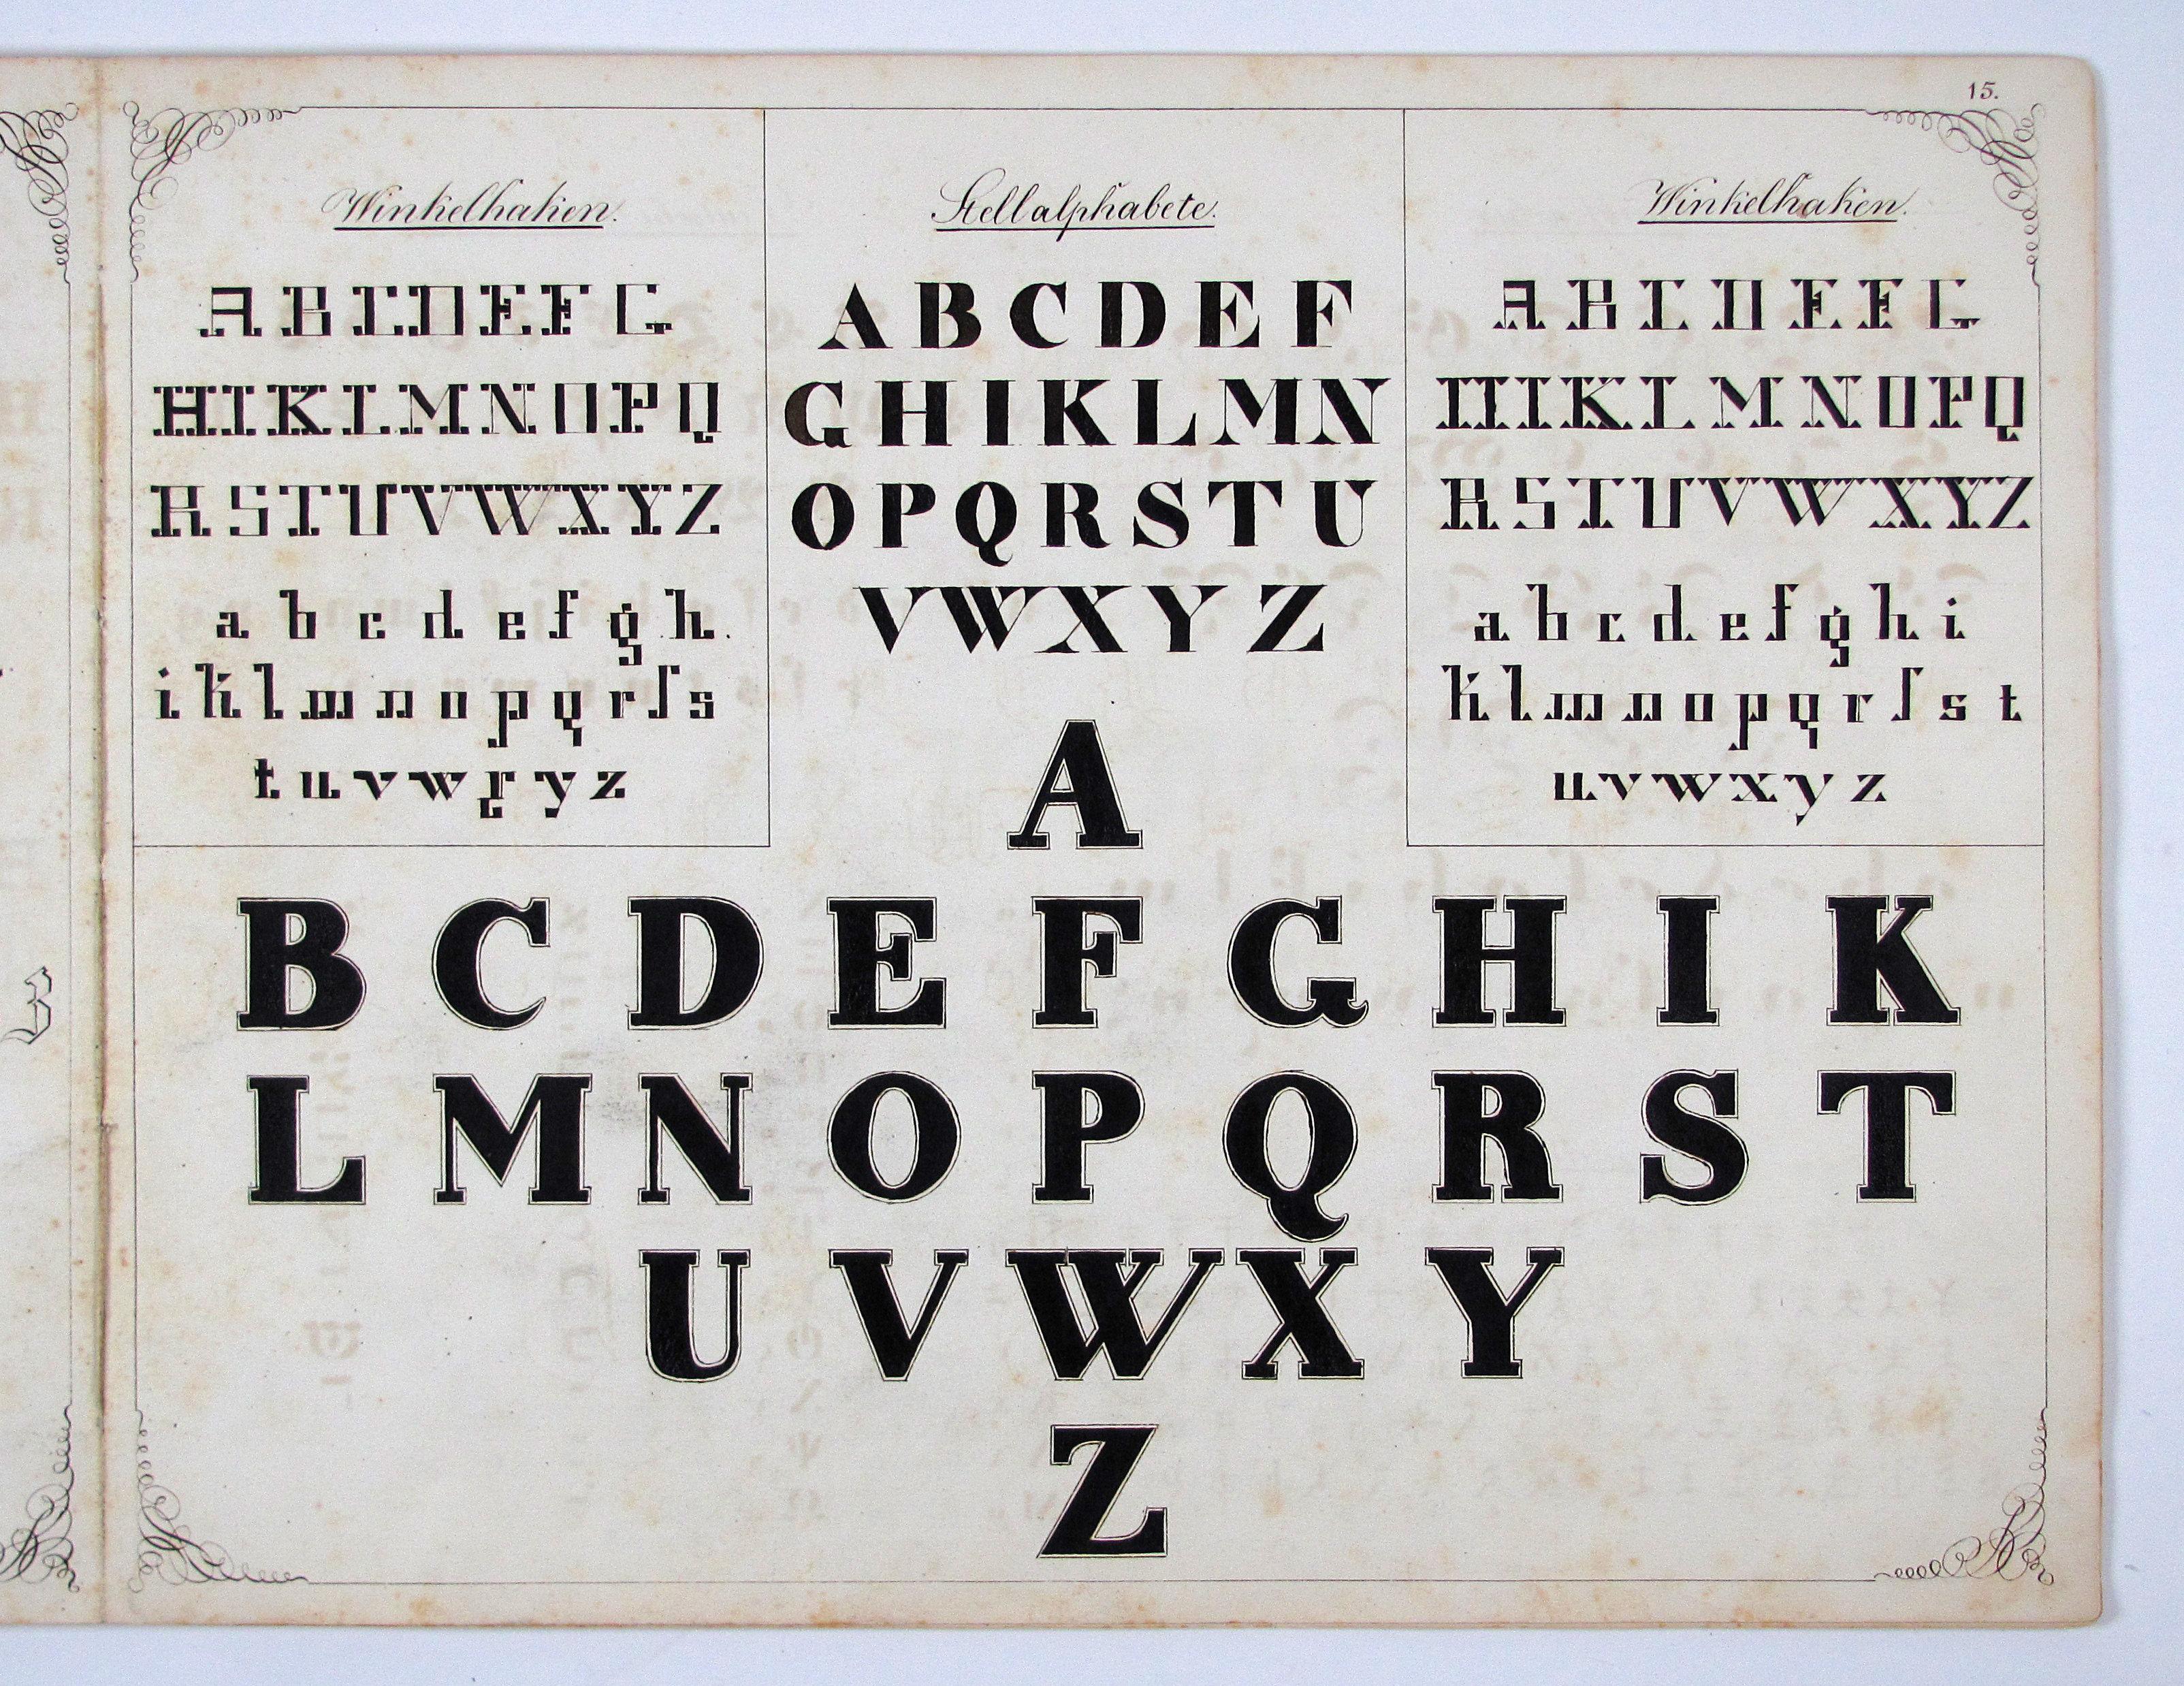 15.
Winkelhaken.
A B C D E F G
H I K L M N O P Q
R S T U V W X Y Z
a b c d e f g h.
i k l m n o p q r ſ s
t u v w x y z
Stellalphabete.
A B C D E F
G H I K L M N
O P Q R S T U
V W X Y Z
Winkelhaken.
A B C D E F G
H I K L M N O P Q
R S T U V W X Y Z
a b c d e f g h i
k l m n o p q r ſ s t
u v w x y z
A
B C D E F G H I K
L M N O P Q R S T
U V W X Y
Z